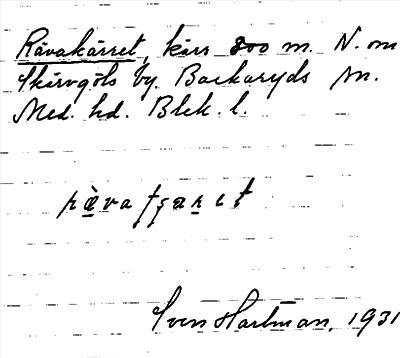 Rävakärret, kärr 800 m. N. om
Skärvgöls by. Backaryds sn.
Med. hd. Blek. l.
Sven Hartman, 1931